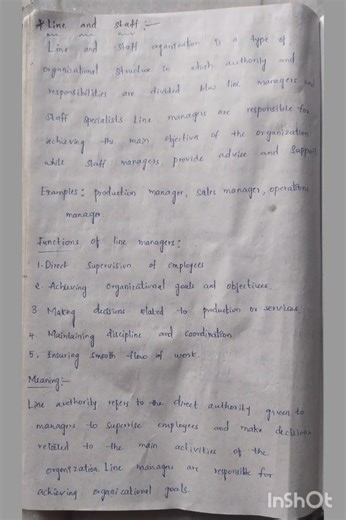 * Line and staff :-
Line and staff organisation is a type of
organisational structure in which authority and
responsibilities are divided b/w line managers and
staff specialists. Line managers are responsible for
achieving the main objective of the organization
while staff managers, provide advise and support
Examples: production manager, sales manager, operations
manager
Functions of line managers:
1. Direct supervision of employees
2. Achieving organisational goals and objectives.
3. Making decisions related to production or services
4. Maintaining discipline and coordination
5. Ensuring smooth flow of work.
Meaning:-
Line authority refers to the direct authority given to
managers to supervise employees and make decisions
related to the main activities of the
organization. Line managers are responsible for
achieving organicational goals.
InShOt